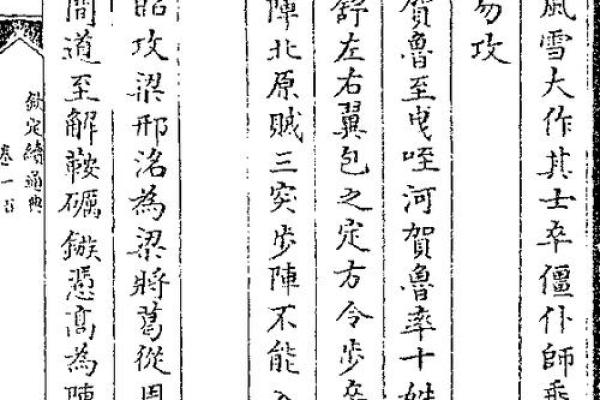 風雪大作其士卒僵仆師乘
易攻
賀魯至曳咥河賀魯率十姓
舒左右翼包之定方令步卒
陣北原賊三突步陣不能入
昭攻梁邢洺為梁將葛從周
間道至解鞍礪鏃憑高為陣
欽定續通典
卷一百